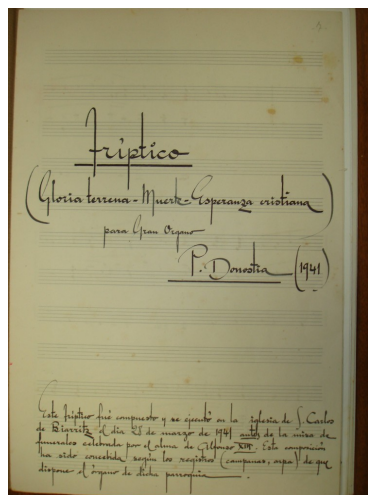 Tríptico
(Gloria terrena - Muerte - Esperanza cristiana)
para Gran Organo
P. Donostia (1941)
Este tríptico fué compuesto y se ejecutó en la iglesia de S. Carlos
de Biarritz el día 25 de marzo de 1941 antes de la misa de
funerales celebrada por el alma de Alfonso XIII. Esta composición
ha sido concebida según los registros (campanas, arpa) de que
dispone el órgano de dicha parroquia